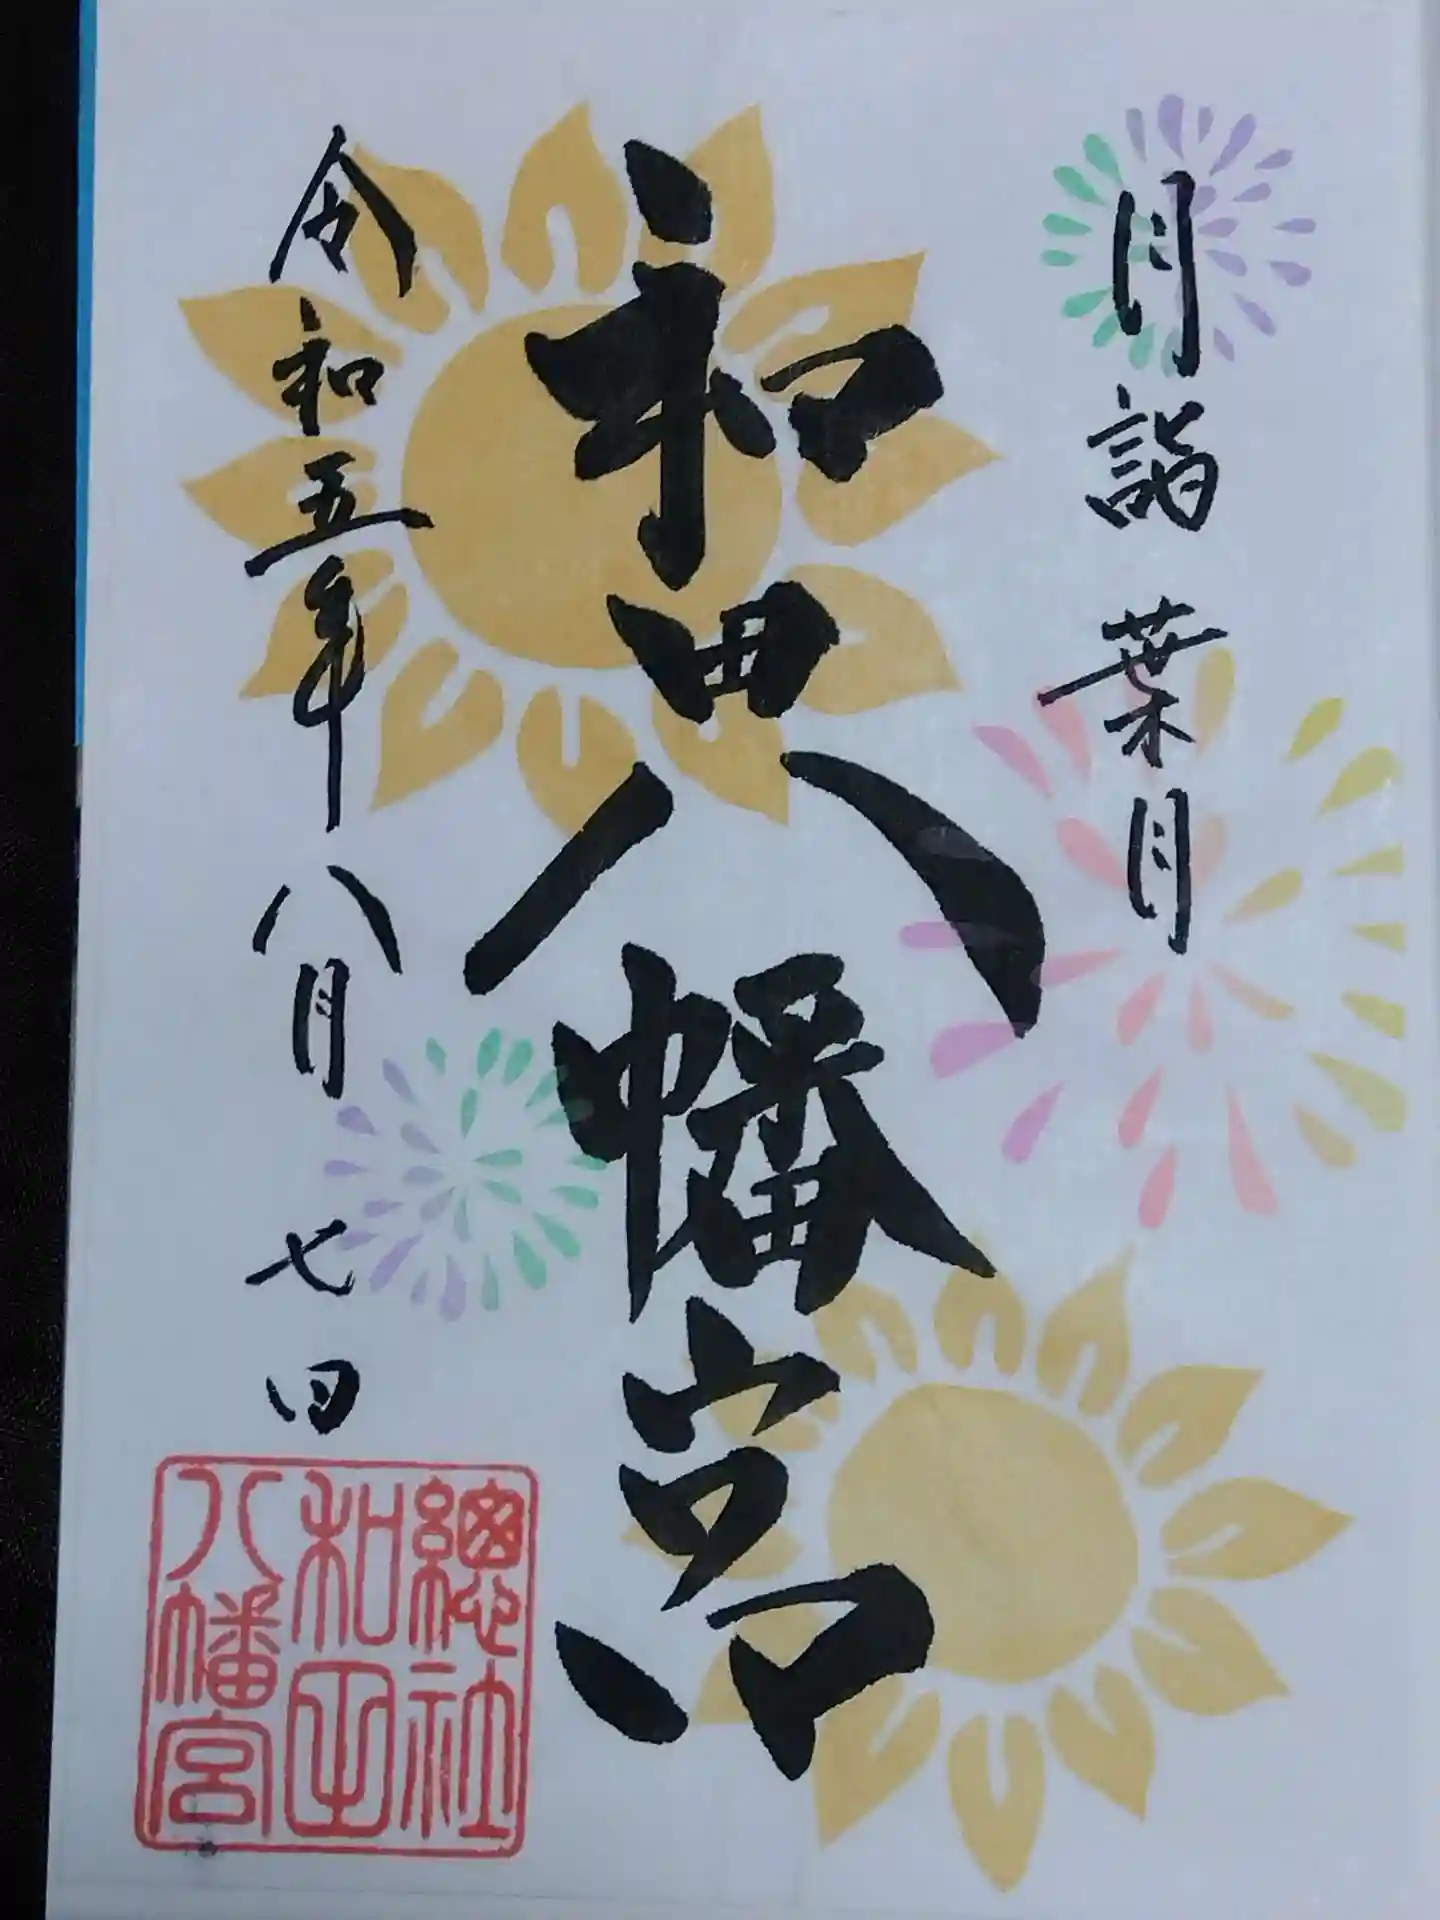 月詣 葉月
和田八幡宮
令和五年八月七日
總社
和田
八幡宮